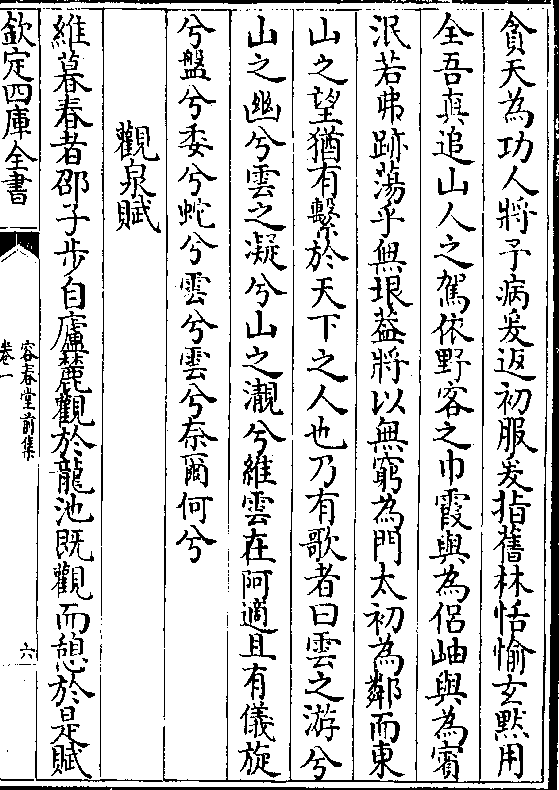 貪天為功人將予病爰返初服爰指舊林恬愉玄黙用
全吾真追山人之駕依野客之巾霞與為侶岫與為賔
泯若弗跡蕩乎無垠葢將以無窮為門太初為鄰而東
山之望猶有繫於天下之人也乃有歌者曰雲之游兮
山之幽兮雲之凝兮山之瀙兮維雲在阿適且有儀旋
兮盤兮委兮蛇兮雲兮雲兮奈爾何兮
觀泉賦
維暮春者邵子歩自廬麓觀於龍池既觀而憩於是賦
欽定四庫全書
容春堂前集
卷一
六